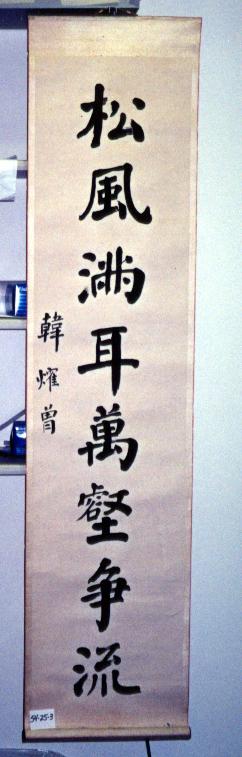 松風滿耳萬壑爭流
韓燿曾
54-25-3